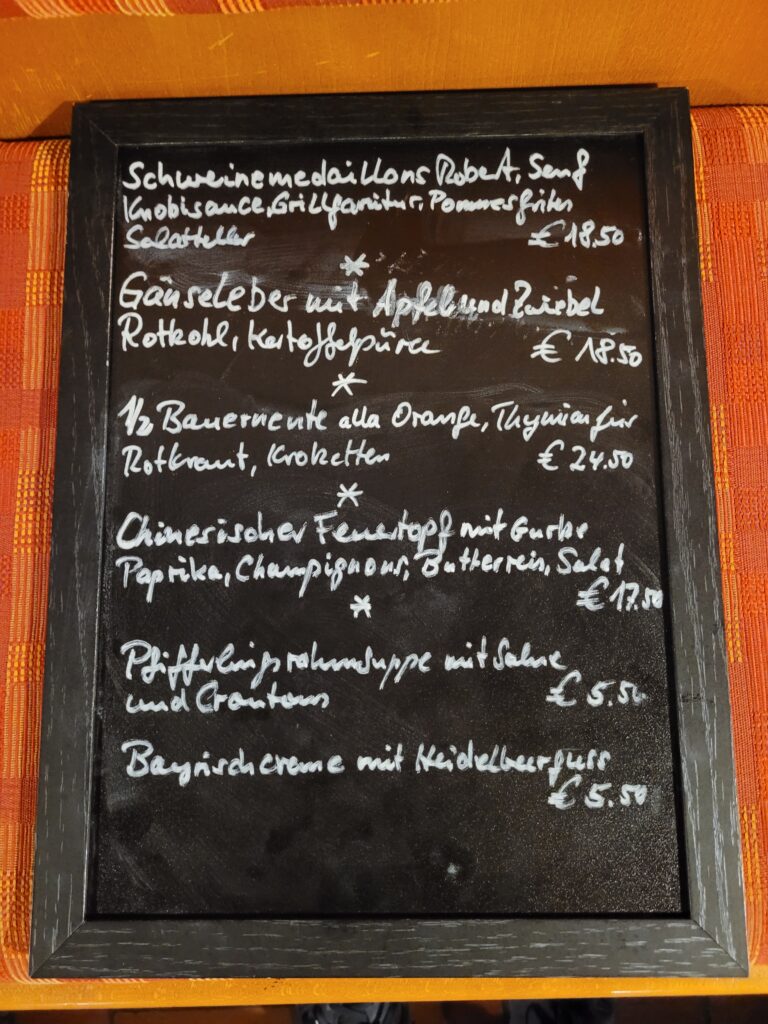 Schweinemedaillons Robert, Senf
Knoblsauce, Grillgarnitur, Pommes frites
Salatteller € 18.50
*
Gänseleber mit Apfel und Zwiebel
Rotkohl, Kartoffelpüree € 18.50
*
1/2 Bauernente alla Orange, Thymianjür
Rotkraut, Kroketten € 24.50
*
Chinesischer Feuertopf mit Gurke
Paprika, Champignons, Butterreis, Salat
€ 17.50
*
Pfifferlingsrahmsuppe mit Sahne
und Croutons € 5.50
Bayrischcreme mit Heidelbeerguss
€ 5.50